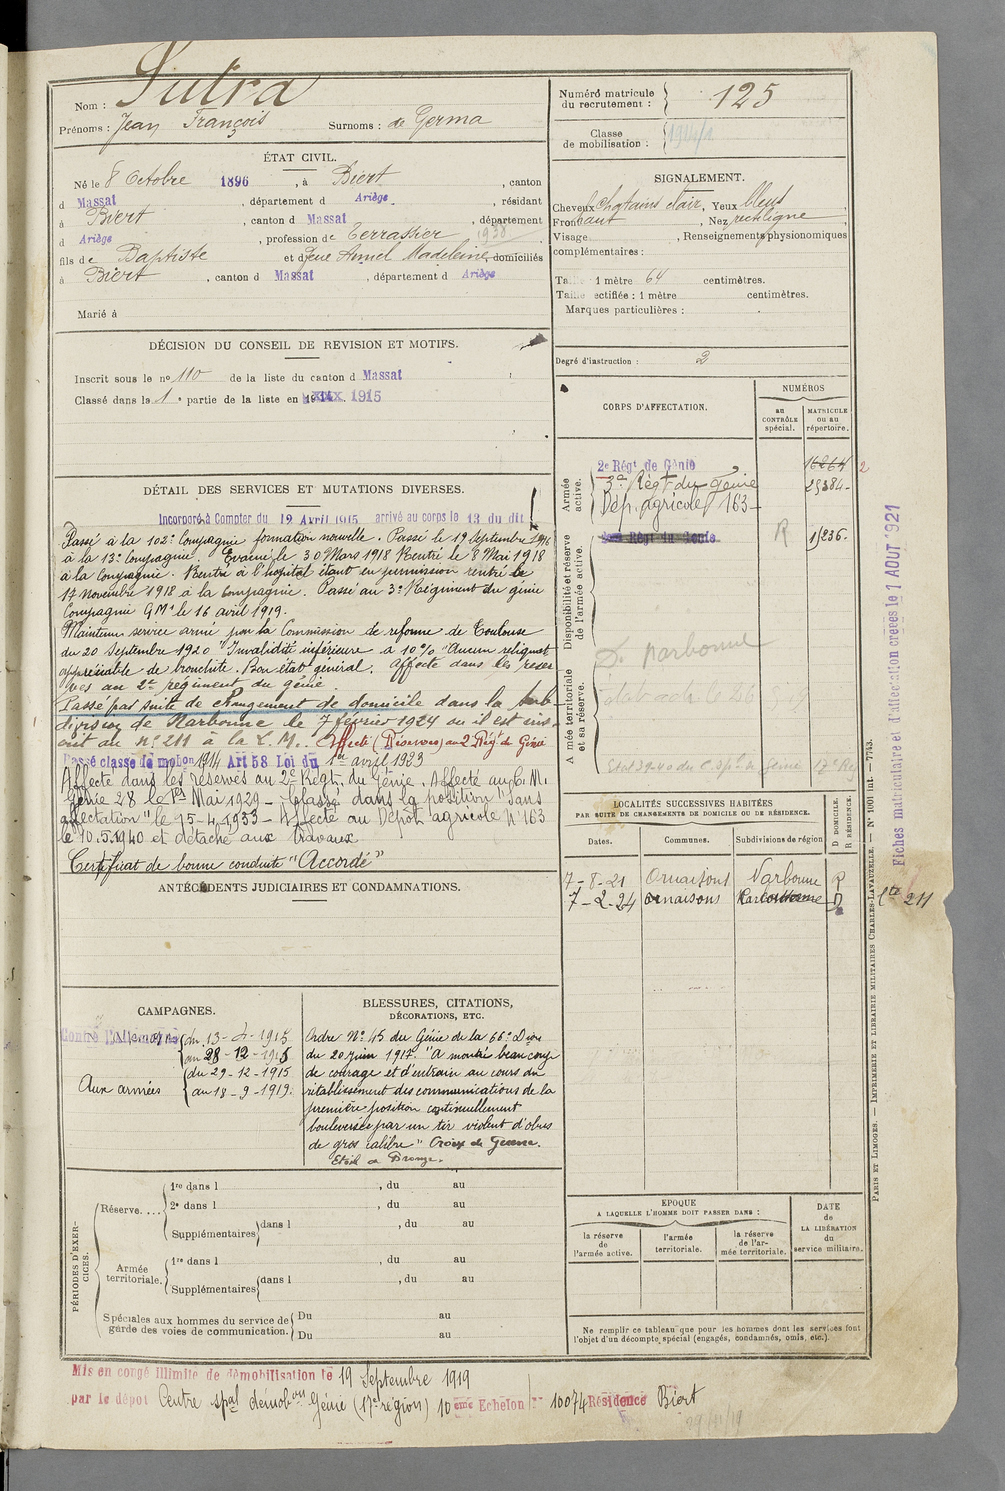 Nom : Sutra
Prénoms : Jean François Surnoms : de Germa
ÉTAT CIVIL.
Né le 8 Octobre 1896, à Biert, canton
d Massat, département d Ariège, résidant
à Biert, canton d Massat, département
d Ariège, profession de Terrassier 1938
fils de Baptiste et d Madeleine, domiciliés
à Biert, canton d Massat, département d Ariège
Marié à
DÉCISION DU CONSEIL DE REVISION ET MOTIFS.
Inscrit sous le no 110 de la liste du canton d Massat
Classé dans la 1e partie de la liste en 1915
DÉTAIL DES SERVICES ET MUTATIONS DIVERSES.
Incorporé à Compter du 12 Avril 1915 arrivé au corps le 13 du dit
Passé à la 102e Compagnie formation nouvelle. Passé le 19 Septembre 1916
à la 13e Compagnie. Évacué le 30 Mars 1918 Rentré le 8 Mai 1918
à la Compagnie. Rentré à l'hopital étant en permission rentré le
17 novembre 1918 à la Compagnie. Passé au 3e Régiment du génie
Compagnie G M1 le 16 avril 1919.
Maintenu service armé par la Commission de réforme de Toulouse
du 20 Septembre 1920 "Invalidité inférieure à 10% "Aucun reliquat
appréciable de bronchite. Bon état général. Affecté dans les réser
ves au 2e régiment du génie.
Passé par suite de changement de domicile dans la sub-
division de Narbonne le 7 février 1924 où il est ins-
crit au no 211 à la L. M. Affecté (Réserves) au 2 Régt de Génie
Passé classe de mobon 1914 Art 58 Loi du 1er avril 1923
Affecté dans les réserves au 2e Régt. du Génie. Affecté au C. M.
Génie 28 le 1er Mai 1929 - Classé dans la position "Sans
affectation" le 15-4-1933 - Affecté au Dépôt agricole No 163
le 10.5.1940 et détaché aux travaux
Certificat de bonne conduite "Accordé"
ANTÉCÉDENTS JUDICIAIRES ET CONDAMNATIONS.
CAMPAGNES.
Contre l'Allemagne du 13-4-1915
au 28-12-1915
Aux armées du 29-12-1915
au 18-9-1919.
BLESSURES, CITATIONS,
DÉCORATIONS, ETC.
Ordre No 45 du Génie de la 66e Dion
du 20 juin 1917. "A montré beaucoup
de courage et d'entrain au cours du
rétablissement des communications de la
première position continuellement
bouleversée par un tir violent d'obus
de gros calibre" Croix de Guerre.
Etoile de Bronze.
PÉRIODES D'EXERCICES.
Réserve....
1re dans l , du au
2e dans l , du au
Supplémentaires dans l , du au
Armée territoriale.
1re dans l , du au
Supplémentaires dans l , du au
Spéciales aux hommes du service de
garde des voies de communication.
Du au
Du au
Mis en congé illimité de démobilisation le 19 Septembre 1919
par le dépot Centre spal démobon Génie (17e région) 10 eme Echelon no 10074 Résidence Biert
29/11/19
Numéro matricule
du recrutement : 125
Classe
de mobilisation :
SIGNALEMENT.
Cheveux Chatains clair, Yeux bleus
Front haut, Nez rectiligne
Visage , Renseignements physionomiques
complémentaires :
Taille 1 mètre 64 centimètres.
Taille rectifiée : 1 mètre centimètres.
Marques particulières :
Degré d'instruction : 2
CORPS D'AFFECTATION.
NUMÉROS
au
CONTRÔLE
spécial.
MATRICULE
ou au
répertoire.
Armée
active.
2e Régt de Génie 16264 2
3e Régt du génie 25384
Dép. agricole 163
Disponibilité et réserve
de l'armée active.
Régt du Génie R 15236
D. Narbonne
Armée territoriale
et sa réserve.
LOCALITÉS SUCCESSIVES HABITÉES
PAR SUITE DE CHANGEMENTS DE DOMICILE OU DE RÉSIDENCE.
Dates. Communes. Subdivisions de région
D DOMICILE.
R RÉSIDENCE.
7-8-21 Ornaisons Narbonne R
7-2-24 Ornaisons Narbonne D
Lte 211
EPOQUE
A LAQUELLE L'HOMME DOIT PASSER DANS :
la réserve
de
l'armée active.
l'armée
territoriale.
la réserve
de l'ar-
mée territoriale.
DATE
de
LA LIBÉRATION
du
service militaire.
Ne remplir ce tableau que pour les hommes dont les services font
l'objet d'un décompte spécial (engagés, condamnés, omis, etc.).
PARIS ET LIMOGES. — IMPRIMERIE ET LIBRAIRIE MILITAIRES CHARLES-LAVAUZELLE. — No 1001 int. — 7743.
Fiches matriculaire et d'affectation créées le 1 AOUT 1921